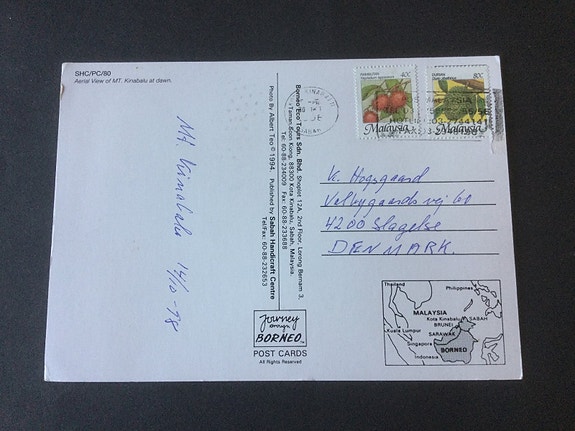 SHC/PC/80
Aerial View of MT. Kinabalu at dawn.
Mt. Kinabalu 14/10 -98
Photo By Albert Teo © 1994. Published by Sabah Handicraft Centre
Tel/Fax: 60-88-232653
Borneo Eco Tours Sdn. Bhd. Shoplot 12A, 2nd Floor, Lorong Bernam 3,
Taman Soon Kiong, 88300 Kota Kinabalu, Sabah, Malaysia
Tel: 60-88-234009 Fax: 60-88-233688
Journey through
BORNEO
POST CARDS
All Rights Reserved
RAMBUTAN
40¢
Malaysia
DURIAN
80¢
Malaysia
KINABALU
SABAH
MALAYSIA
K. Hogsgaard
Valbygaardsvej 60
4200 Slagelse
DENMARK.
Thailand
Philippines
MALAYSIA
Kota Kinabalu
SABAH
BRUNEI
Kuala Lumpur
SARAWAK
Singapore
BORNEO
Indonesia